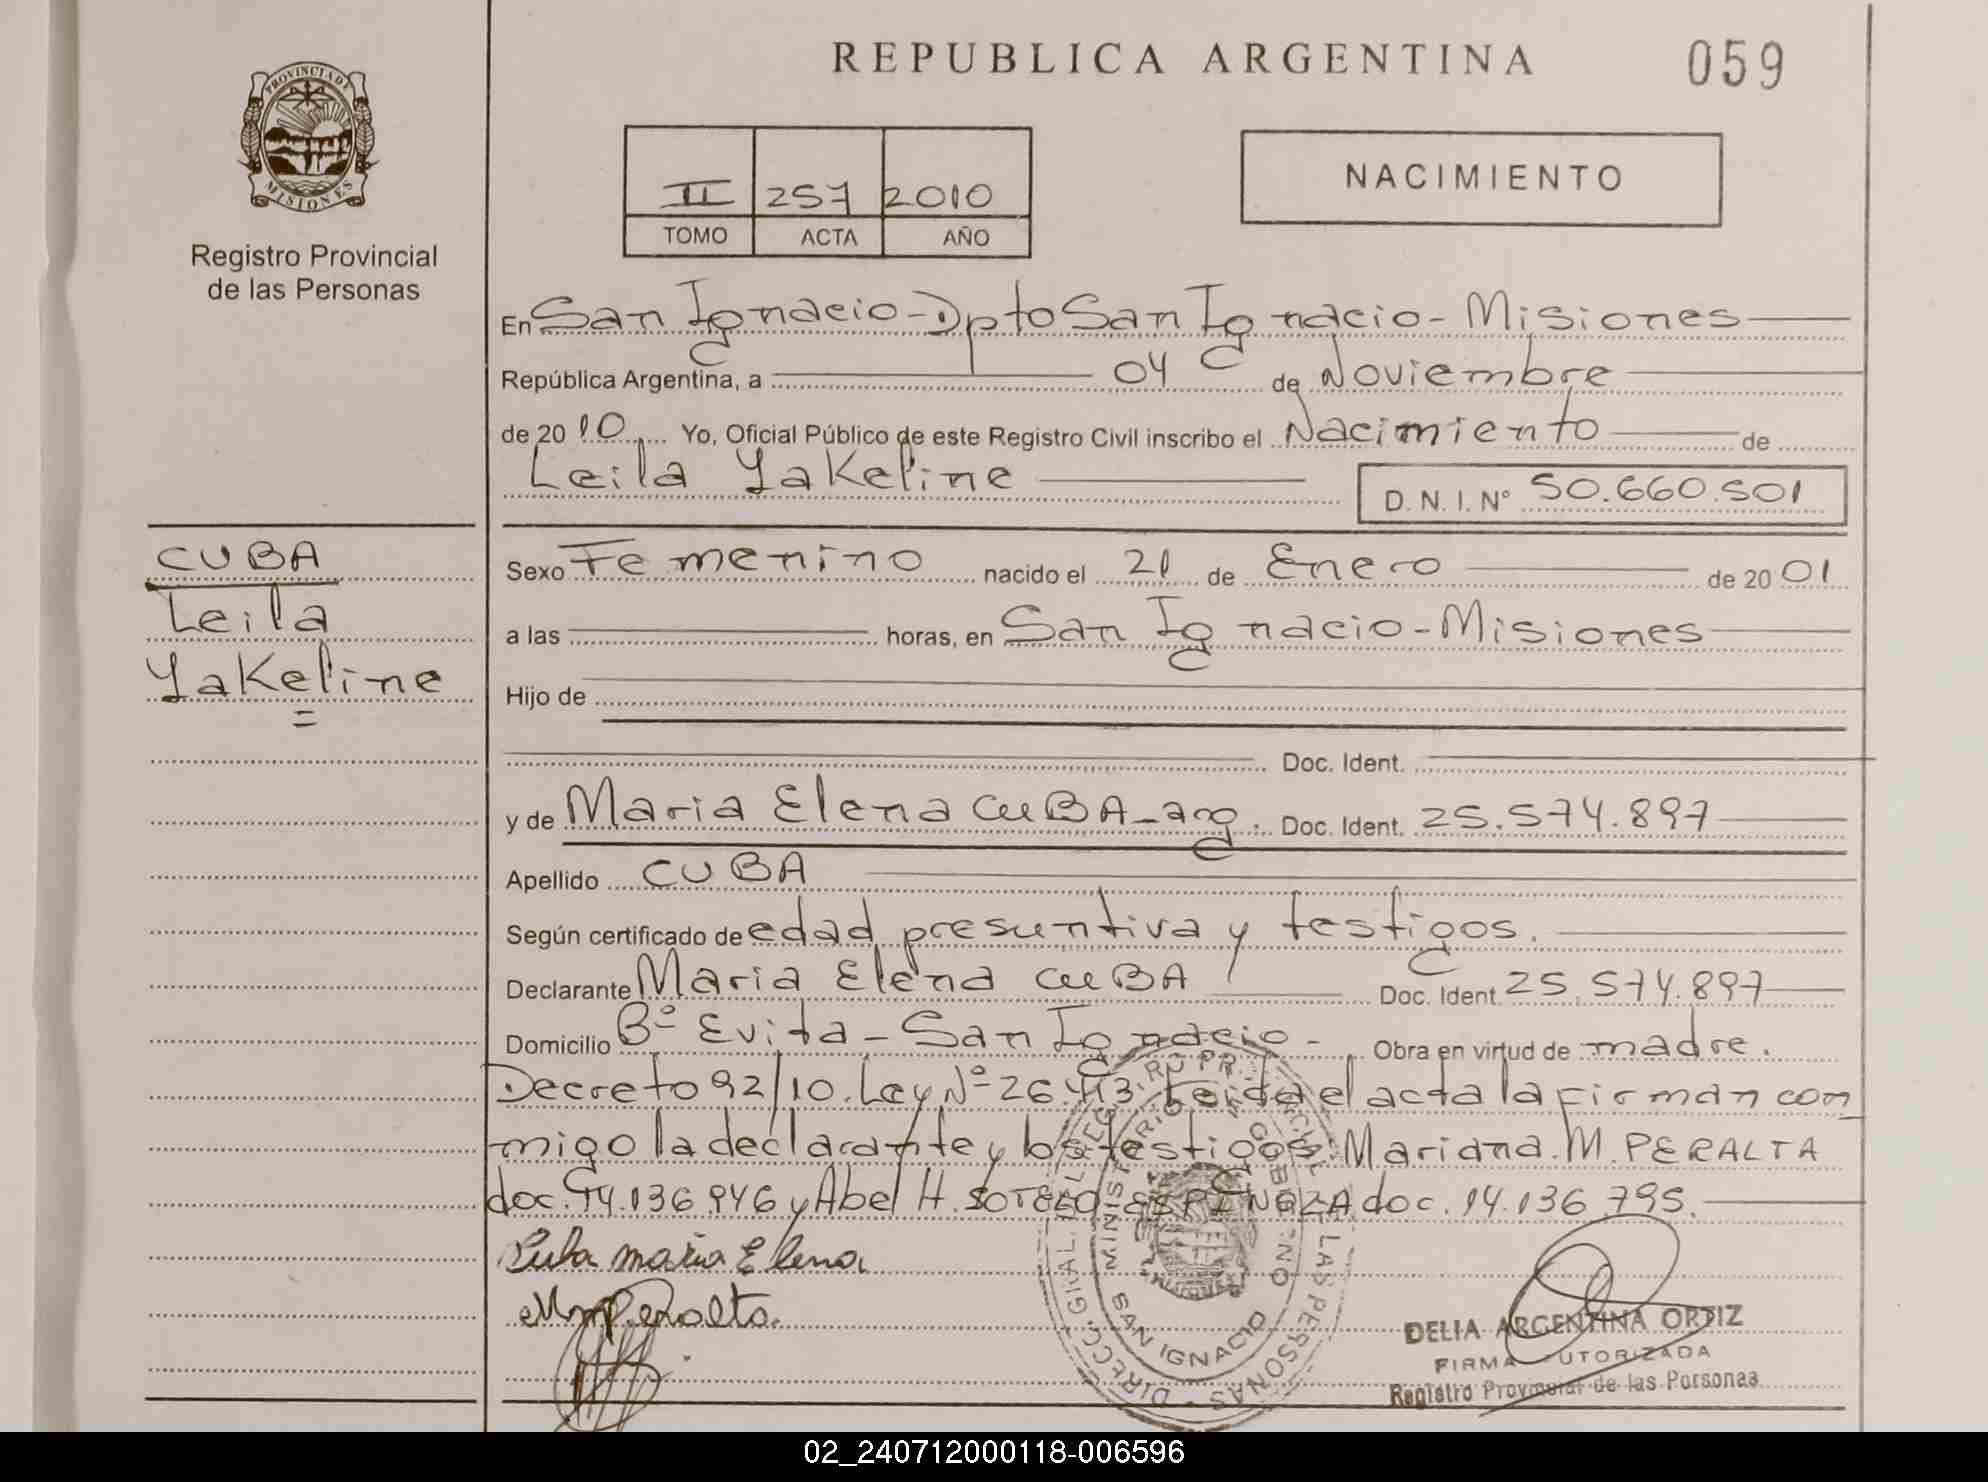 REPUBLICA ARGENTINA
059
PROVINCIA DE
MISIONES
Registro Provincial
de las Personas
II 257 2010
TOMO ACTA AÑO
NACIMIENTO
En San Ignacio - Dpto San Ignacio - Misiones
República Argentina, a 04 de Noviembre
de 2010 Yo, Oficial Público de este Registro Civil inscribo el Nacimiento de
Leila Yakeline
D. N. I. N° 50.660.501
CUBA
Leila
Yakeline
=
Sexo Femenino nacido el 21 de Enero de 2001
a las horas, en San Ignacio - Misiones
Hijo de
Doc. Ident.
y de Maria Elena CUBA - arg. Doc. Ident. 25.574.897
Apellido CUBA
Según certificado de edad presuntiva y testigos.
Declarante Maria Elena CUBA Doc. Ident. 25.574.897
Domicilio Bº Evita - San Ignacio - Obra en virtud de madre.
Decreto 92/10. Ley Nº 26.413. Leida el acta la firman con
migo la declarante y los testigos: Mariana. M. PERALTA
doc. 14.136.946 y Abel H. SOTELO ESPINOZA doc. 14.136.795.
Cuba maria Elena.
MmPeralta.
MINISTERIO GOBIERNO
SAN IGNACIO
LAS PERSONAS
DELIA ARGENTINA ORTIZ
FIRMA AUTORIZADA
Registro Provincial de las Personas
02_240712000118-006596